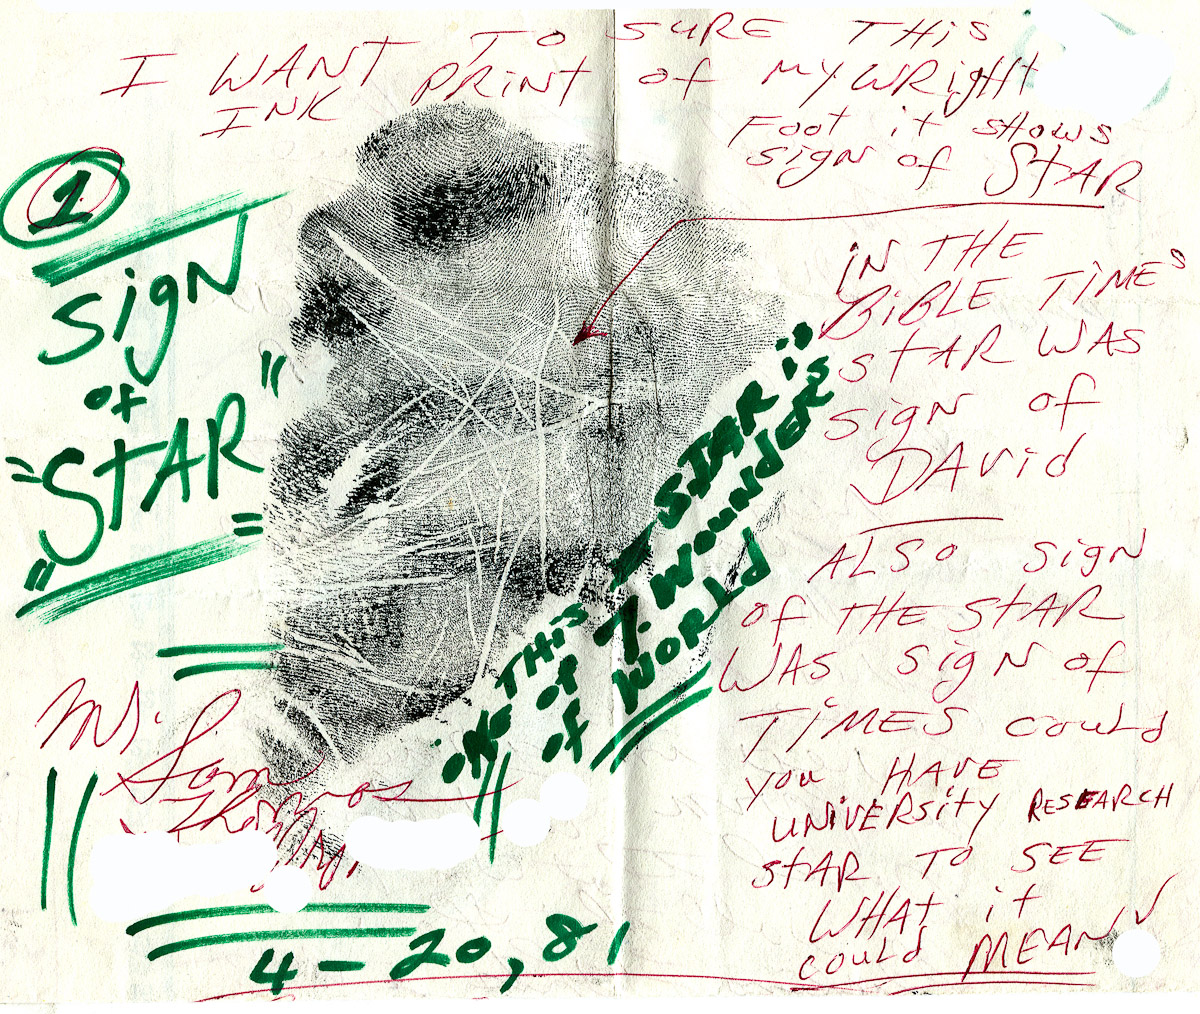 I WANT TO SURE THIS
INK PRINT of MY WRight
Foot it shows
SigN of StAR
1
SigN
of
"StAR"
iN THE
BiBLE TiMEs
StAR WAS
SigN of
DAvid
ALSO SigN
of THE StAR
WAS SigN of
TiMES could
you HAVE
UNiVERSity RESEARCH
StAR TO SEE
WHAt it
could MEAN
THiS STAR is
oNE of 7. WouNdERS
of WoRLd
Mr. Sam
Thomas
4-20,81